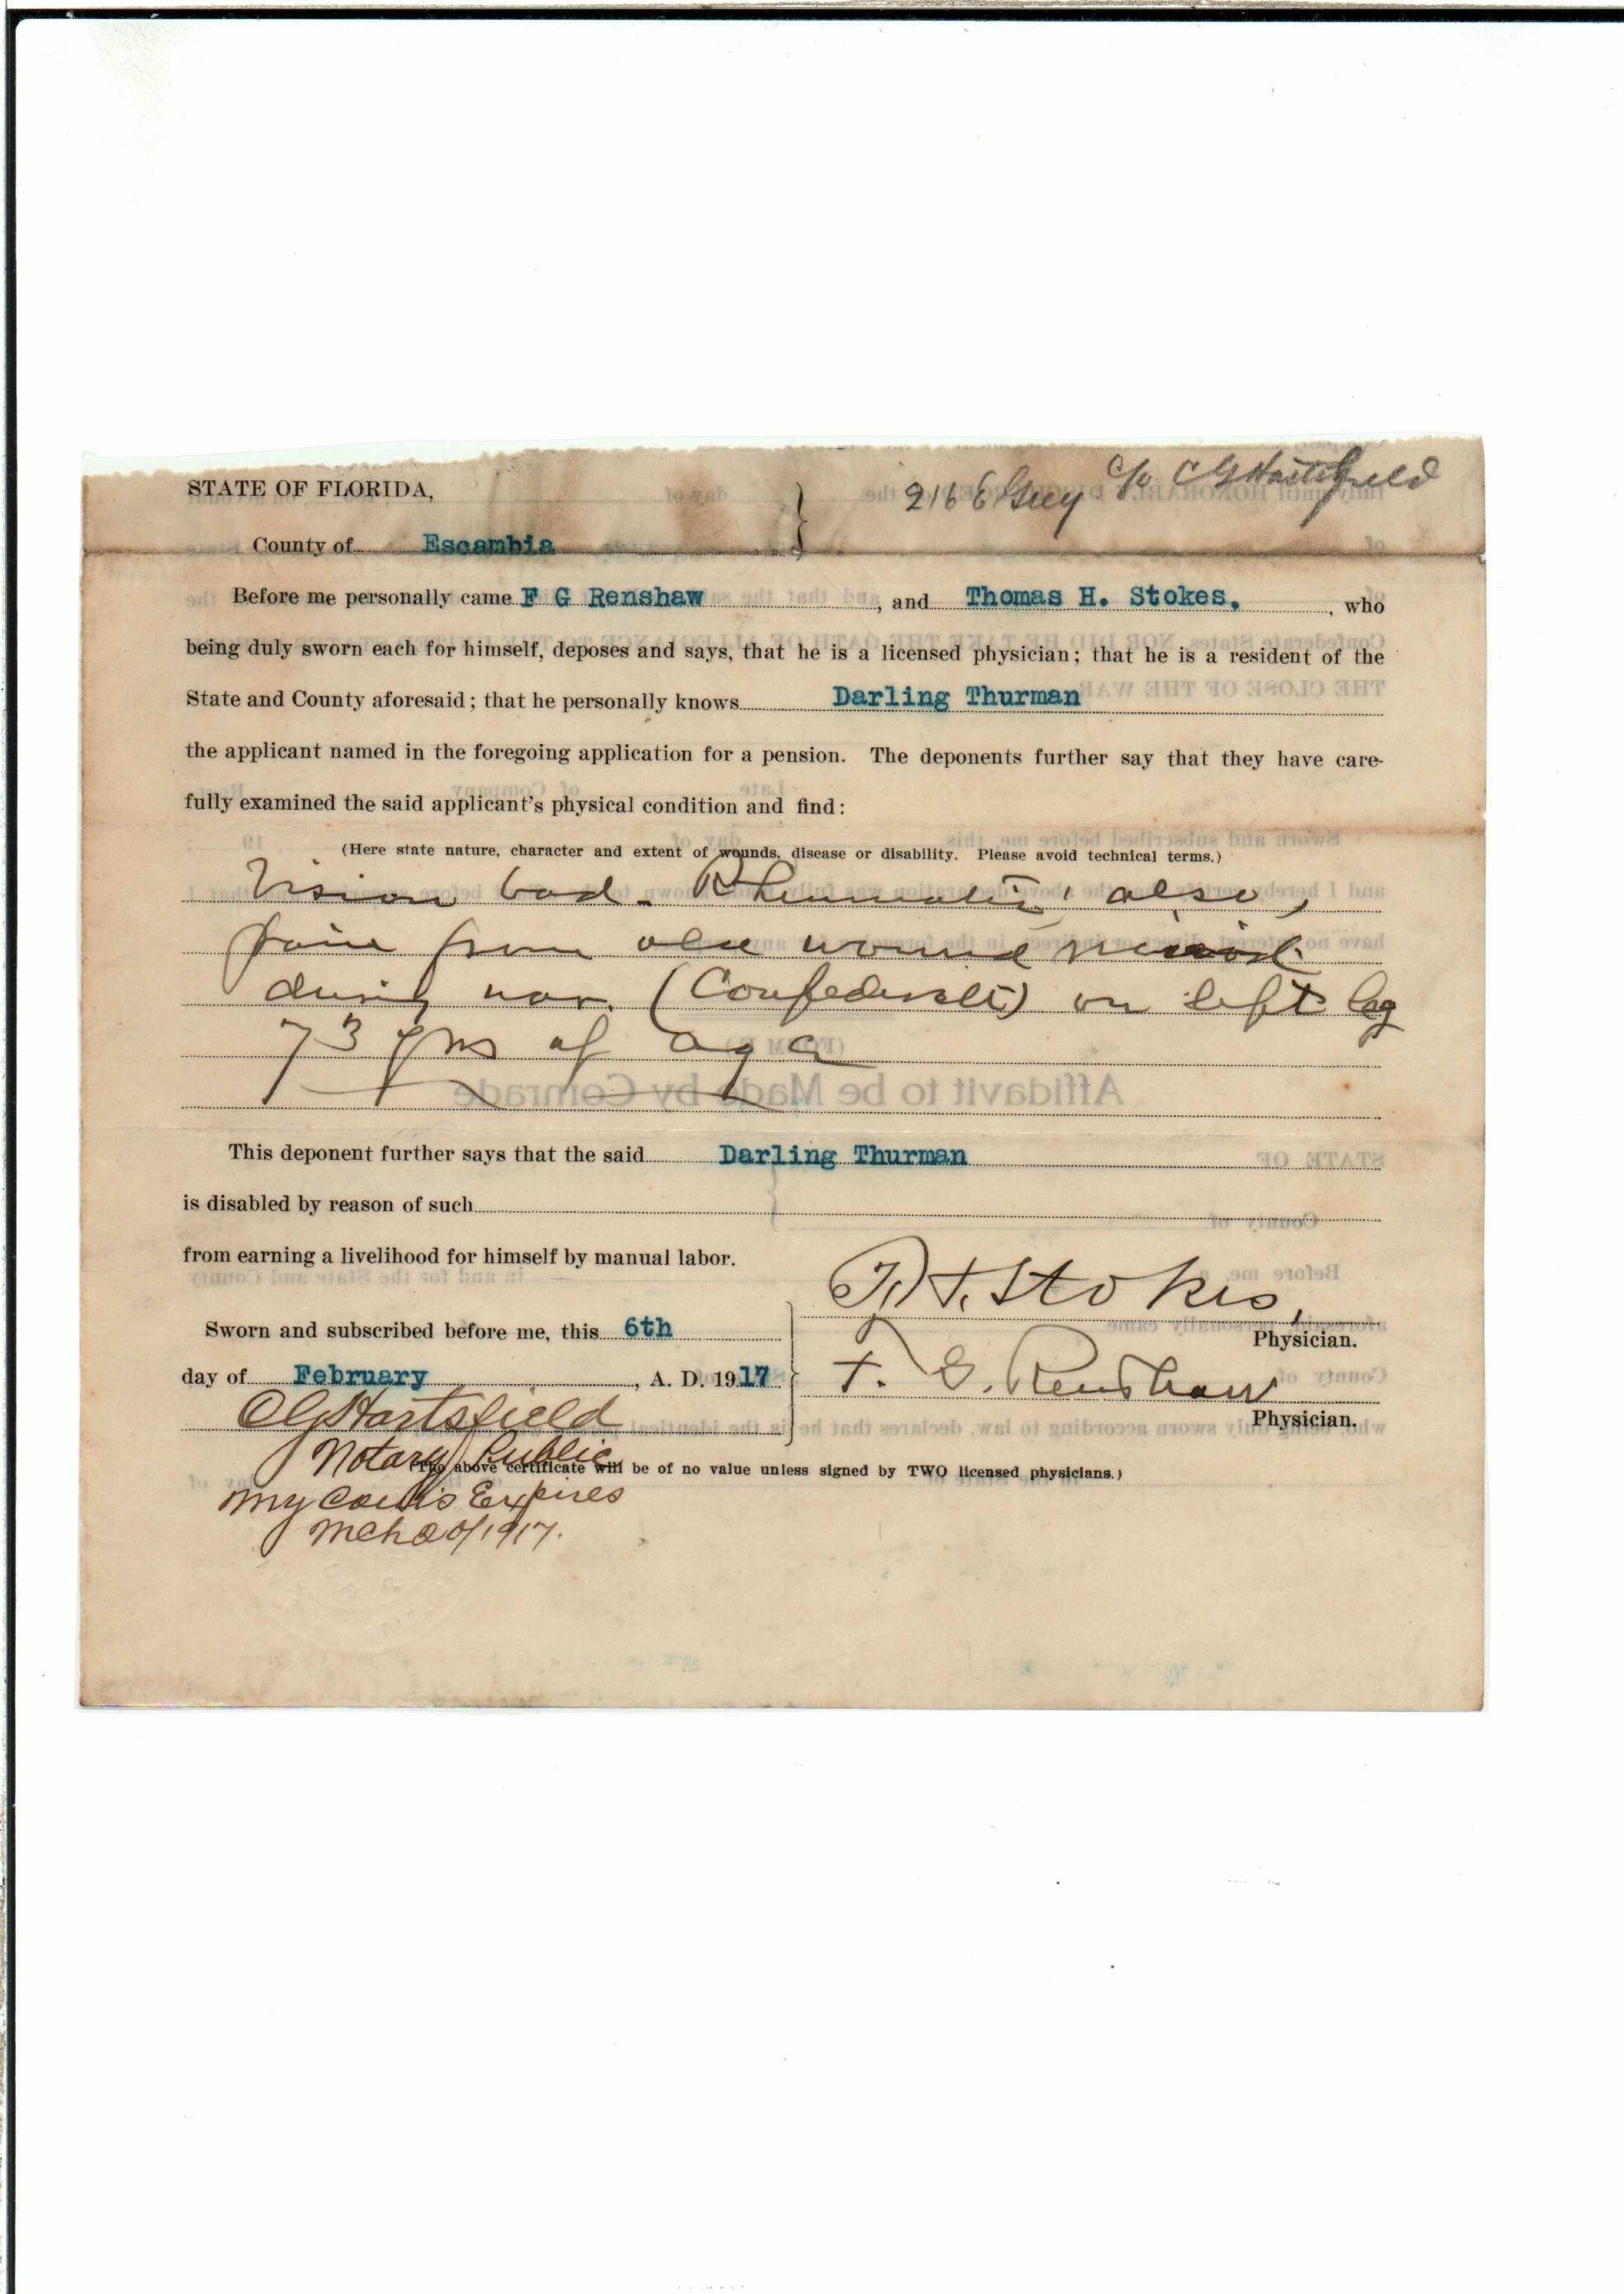 STATE OF FLORIDA,
216 E Guy c/o C G Hartsfield
County of Escambia
Before me personally came F G Renshaw, and Thomas H. Stokes., who
being duly sworn each for himself, deposes and says, that he is a licensed physician; that he is a resident of the
State and County aforesaid; that he personally knows Darling Thurman
the applicant named in the foregoing application for a pension. The deponents further say that they have care-
fully examined the said applicant's physical condition and find:
(Here state nature, character and extent of wounds, disease or disability. Please avoid technical terms.)
Vision bad - Rheumatic also,
pain from old wound
during war. (Confederate) on left leg
73 yrs of age
This deponent further says that the said Darling Thurman
is disabled by reason of such
from earning a livelihood for himself by manual labor.
T. H. Stokes,
Physician.
Sworn and subscribed before me, this 6th
day of February, A. D. 1917
F. G. Renshaw
Physician.
C G Hartsfield
Notary Public
(The above certificate will be of no value unless signed by TWO licensed physicians.)
My Comis Expires
Mch 20/1917.